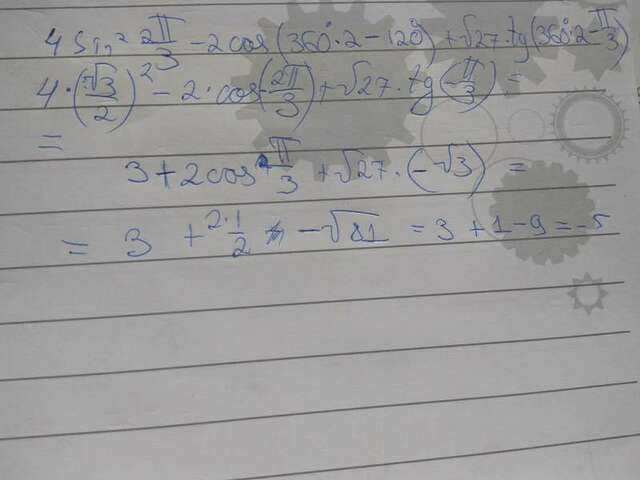 4 sin² 2π/3 - 2 cos (360°·2 - 120°) + √27 · tg (360°·2 - π/3)
4 · (√3/2)² - 2 · cos (-2π/3) + √27 · tg (-π/3) =
=
3 + 2 cos π/3 + √27 · (-√3) =
= 3 + 2·1/2 - √81 = 3 + 1 - 9 = -5